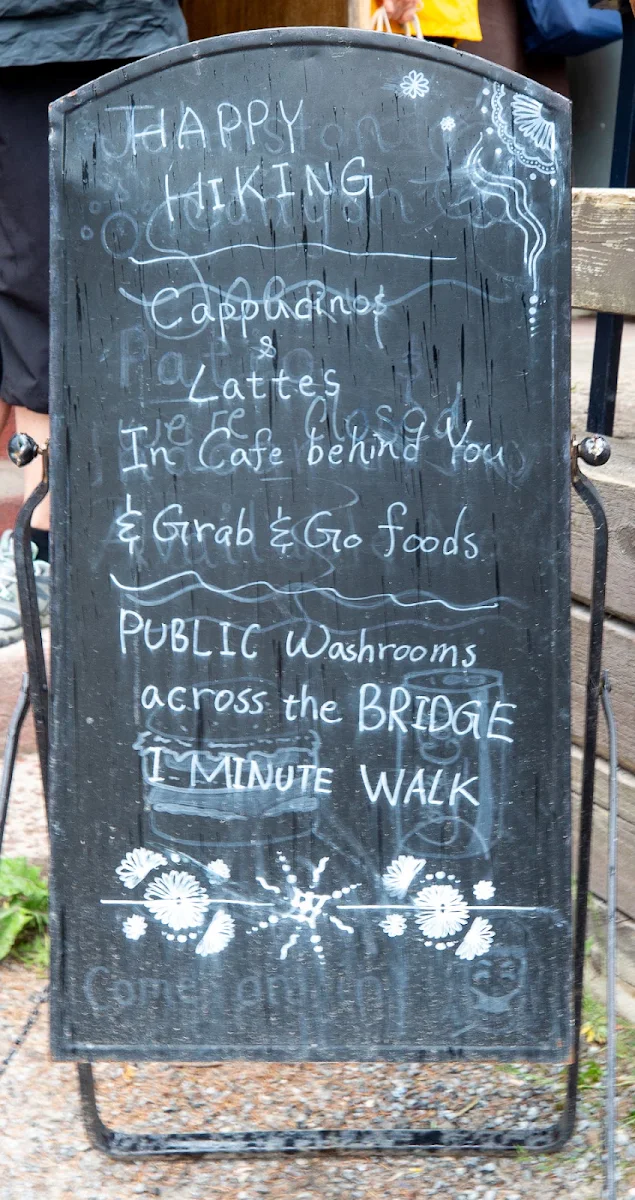 HAPPY
HIKING
Cappucinos
&
Lattes
In Cafe behind You
& Grab & Go foods
PUBLIC Washrooms
across the BRIDGE
1 MINUTE WALK
Come on in